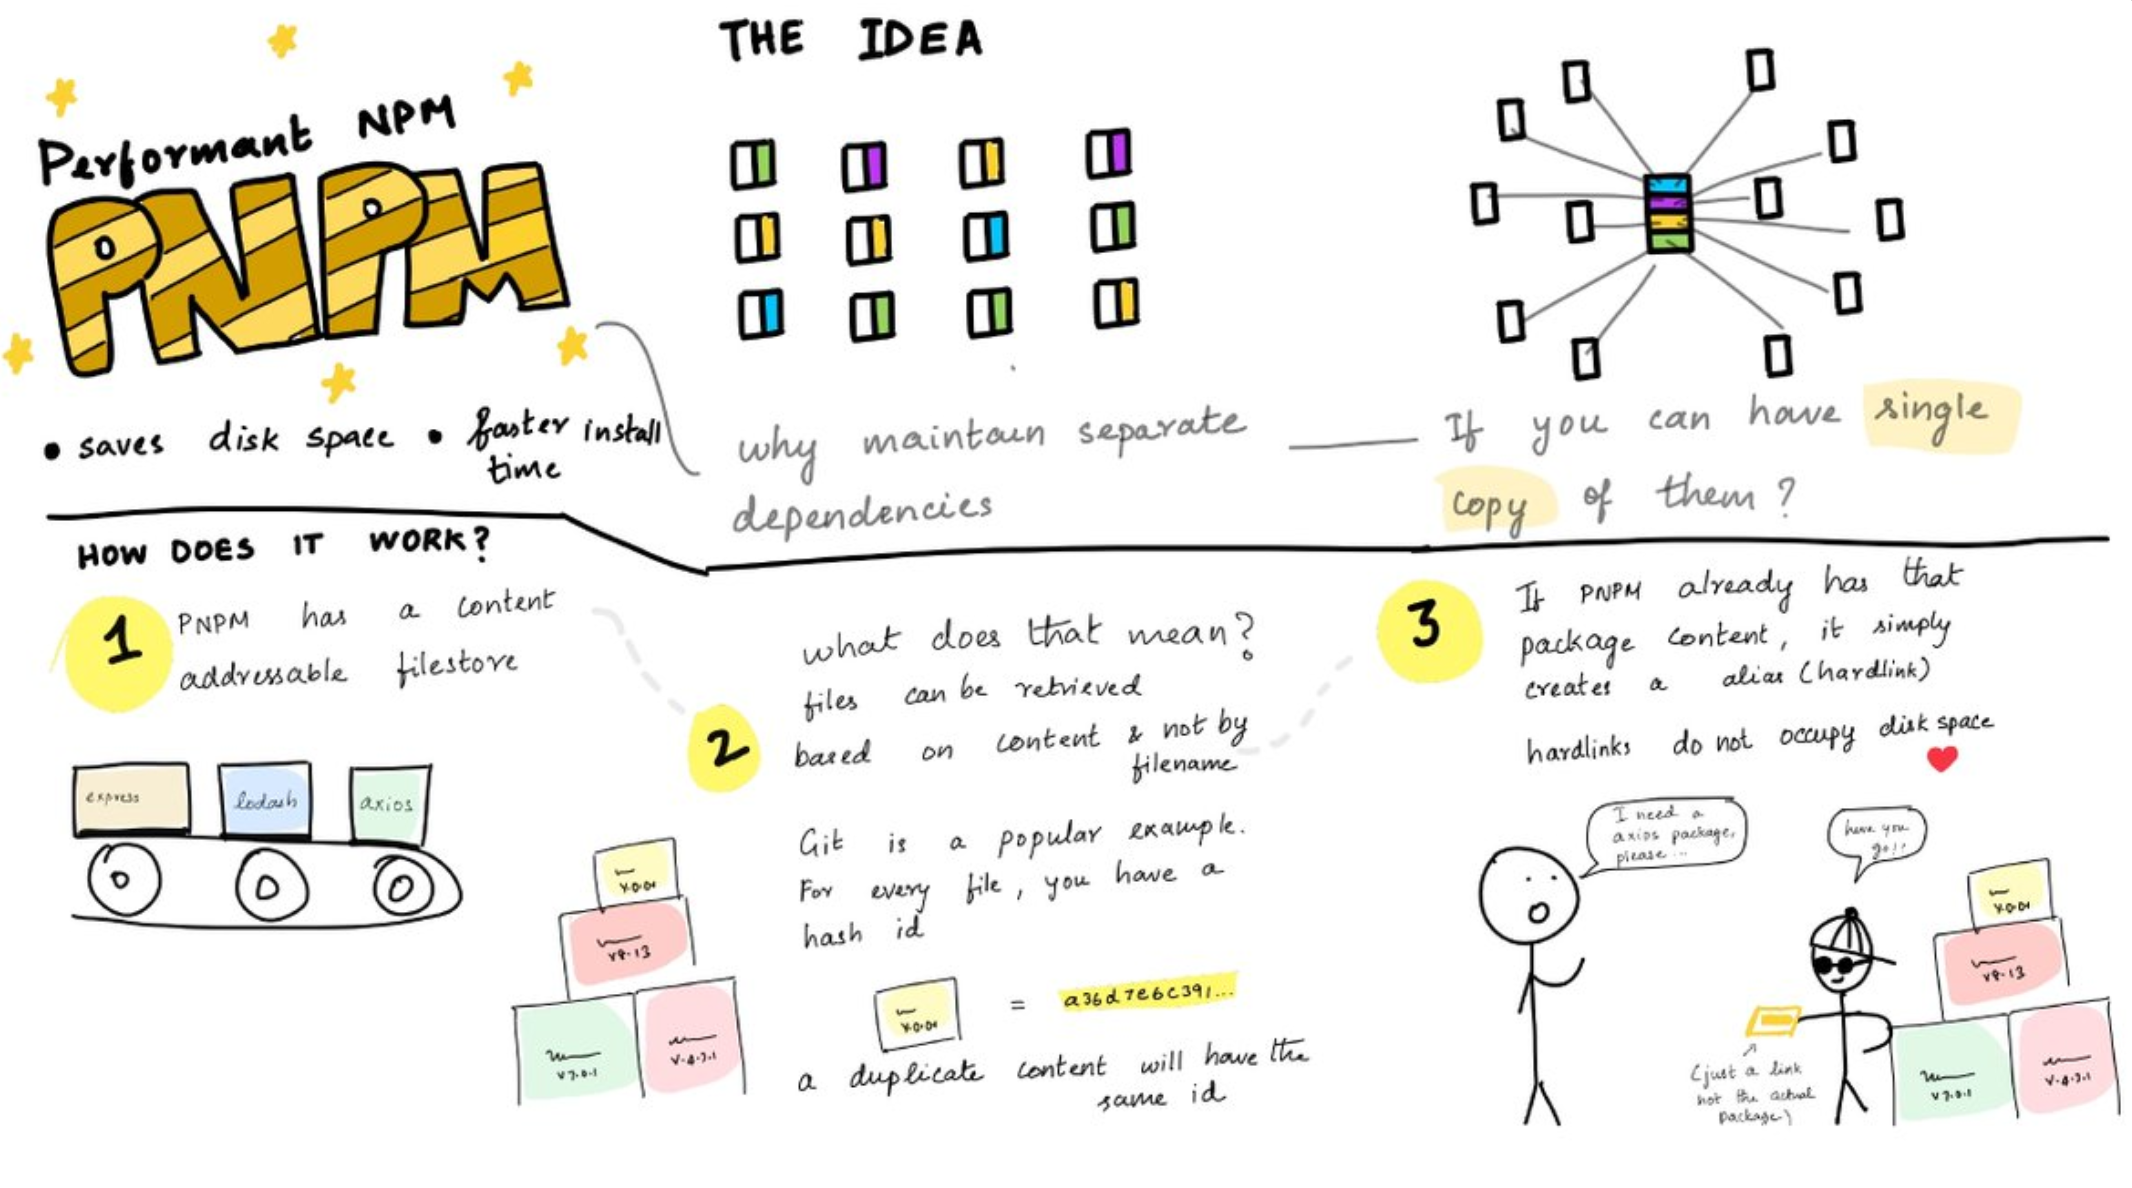 Performant NPM
PNPM
• saves disk space • faster install
time
THE IDEA
why maintain separate
dependencies
If you can have single
copy of them?
HOW DOES IT WORK?
1
PNPM has a content
addressable filestore
express
lodash
axios
2
what does that mean?
files can be retrieved
based on content & not by
filename
Git is a popular example.
For every file, you have a
hash id
v.0.01
= a36d7e6c391...
a duplicate content will have the
same id
v.0.01
v8.13
v7.0.1
v.4.3.1
3
If PNPM already has that
package content, it simply
creates a alias (hardlink)
hardlinks do not occupy disk space
I need a
axios package,
please...
here you
go!!
(just a link
not the actual
package)
v.0.01
v8.13
v7.0.1
v.4.3.1